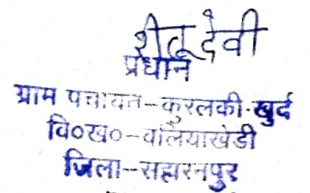 शीतू देवी
प्रधान
ग्राम पंचायत-कुरलकी-खुर्द
वि०ख०-बलियाखेडी
जिला-सहारनपुर